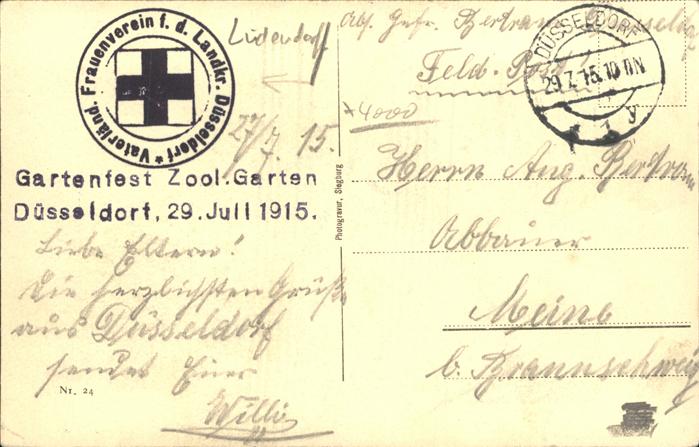 Vaterländ. Frauenverein f. d. Landkr. Düsseldorf *
Ludendorf
27/7. 15.
Gartenfest Zool. Garten
Düsseldorf, 29. Juli 1915.
Liebe Eltern!
Die herzlichsten Grüße
aus Düsseldorf
sendet Euer
Willi
Nr. 24
Photogravur, Siegburg
Abs. Gefr. Bertram Düsseldorf
Feld-Post
4000
DÜSSELDORF
29.7.15.10 11N
1 y
Herrn Aug. Bertram
Abbauer
Meine
b. Braunschweig